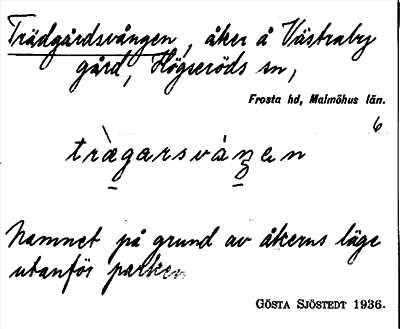 Trädgårdsvången, åker å Västraby
gård, Högseröds sn,
Frosta hd, Malmöhus län.
6
trägarsváŋen
Namnet på grund av åkerns läge
utanför parken
GÖSTA SJÖSTEDT 1936.